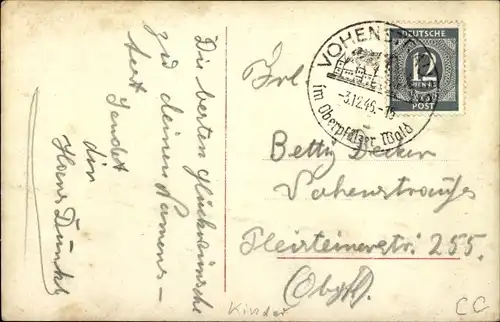 Die besten Glückwünsche
zu deinem Namens-
fest sendet
dir
Hans
VOHENS
-3.12.46.-15
im Oberpfälzer Wald
DEUTSCHE
12
PFENNIG
POST
Frl.
Betty Decker
Vohenstrauß
Pleisteinerstr. 255.
(Obpf.)
Kinder
CC